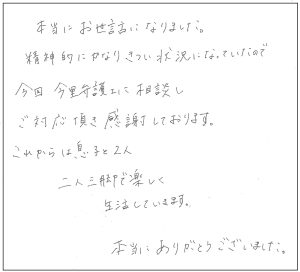 本当にお世話になりました。
精神的にかなりきつい状況になっていたので
今回 今里弁護士に相談し
ご対応頂き感謝しております。
これからは息子と2人
二人三脚で楽しく
生活していきます。
本当にありがとうございました。